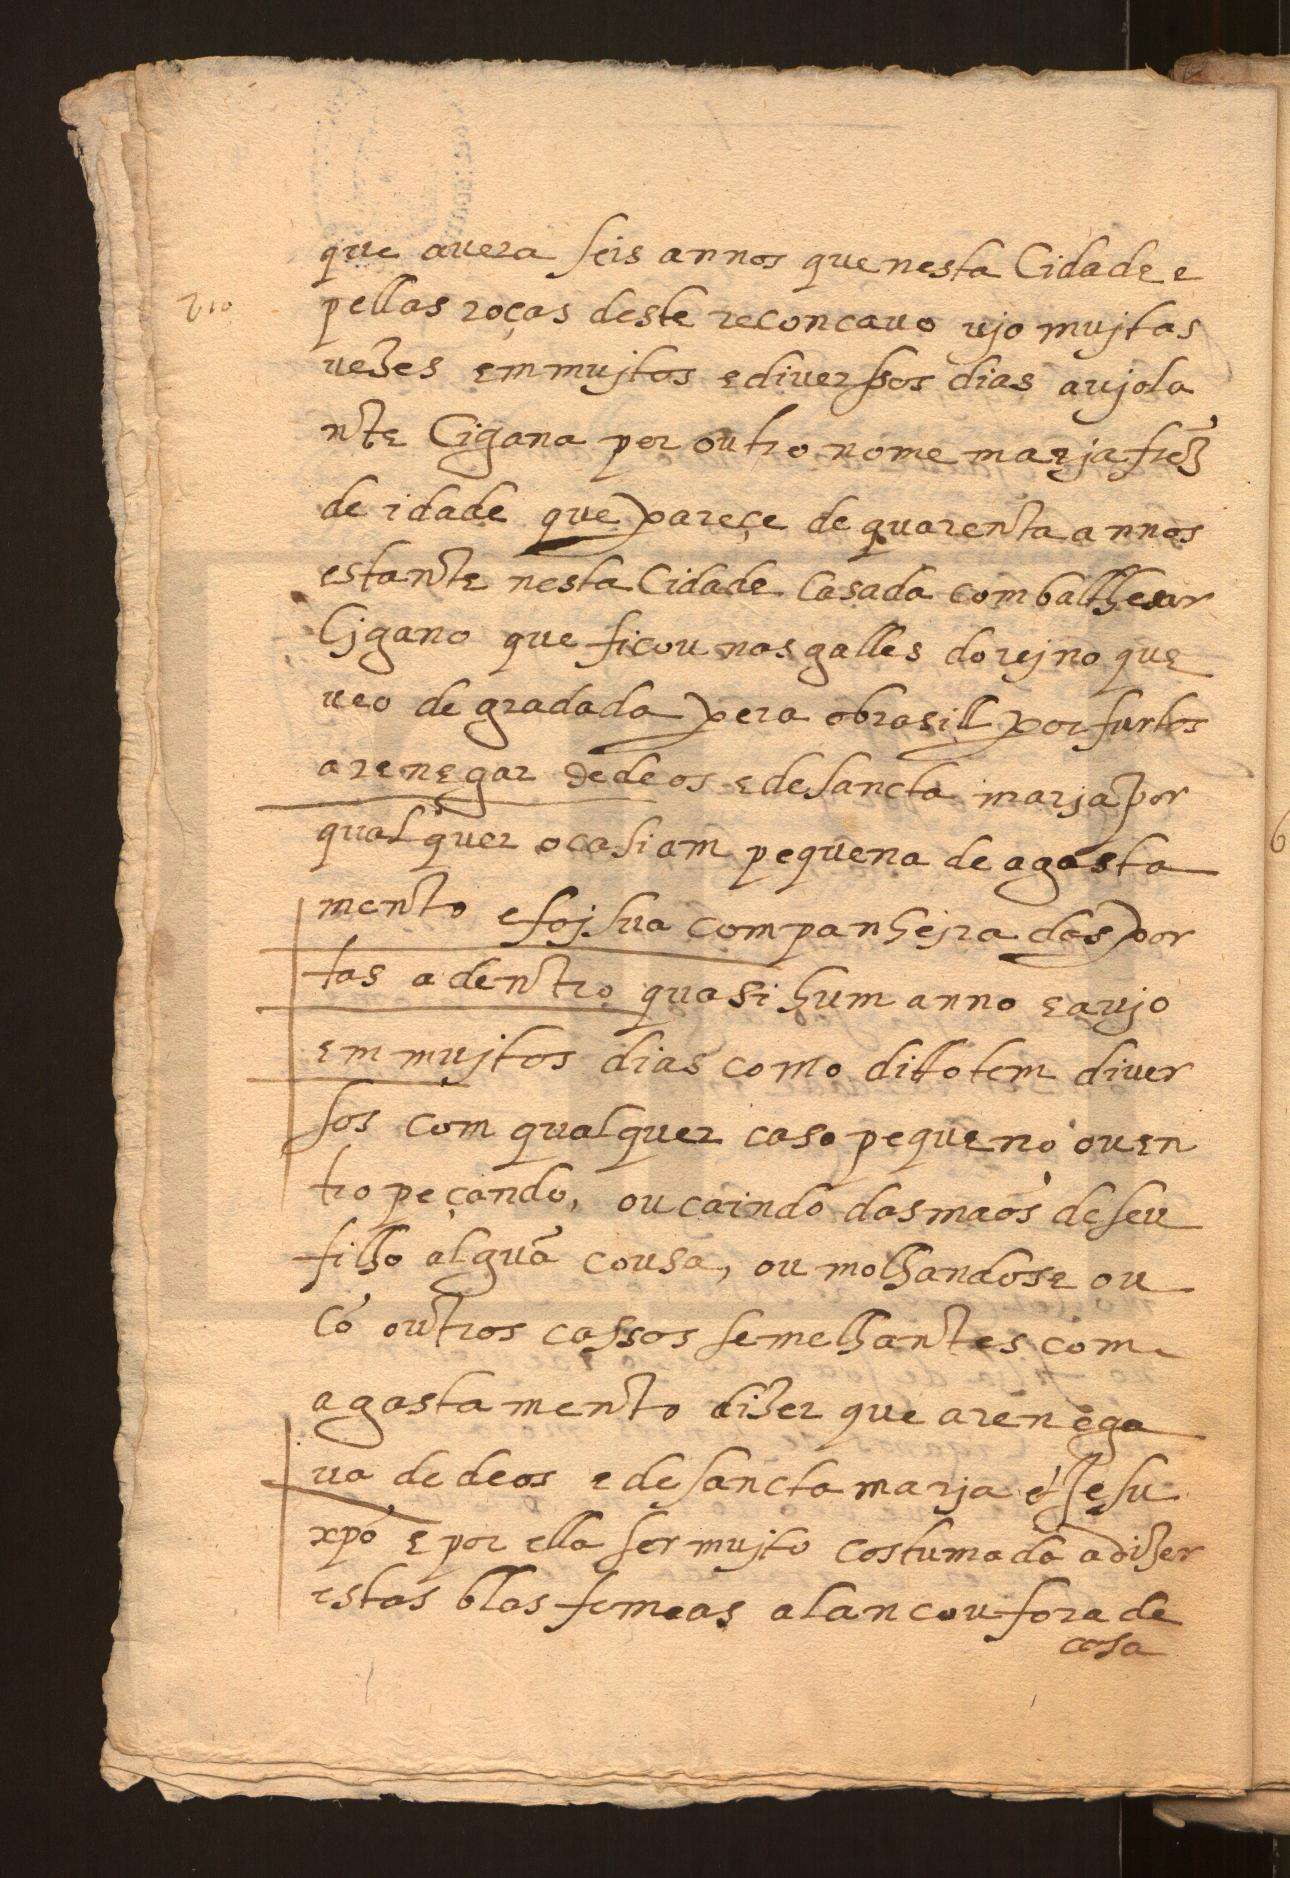 que avera seis annos que nesta Cidade e
vio
pellas roças deste reconcavo vjo mujtas
vezes em mujtos e diverssos dias a vjola
nte Cigana por outro nome marja frz̃
de idade que pareçe de quarenta annos
estante nesta Cidade Casada com balthesar
Cjgano que ficou nas galles do rejno que
veo degradada pera o brasill por furtos
arenegar de deos e de sancta marja por
qualquer ocasiam pequena de agasta
mento e foj sua companhejra das por
tas a dentro quasi hum anno e a vjo
em mujtos dias como ditto tem diver
sos com qualquer caso pequeno ou en
tropeçando, ou caindo das maos de seu
filho algũa cousa, ou molhandose ou
cõ outros cassos semelhantes com
agastamento dizer que arenega
va de deos e de sancta marja e Jesu
xpõ e por ella ser mujto costumada a dizer
estas blasfemeas a lancou fora de
casa